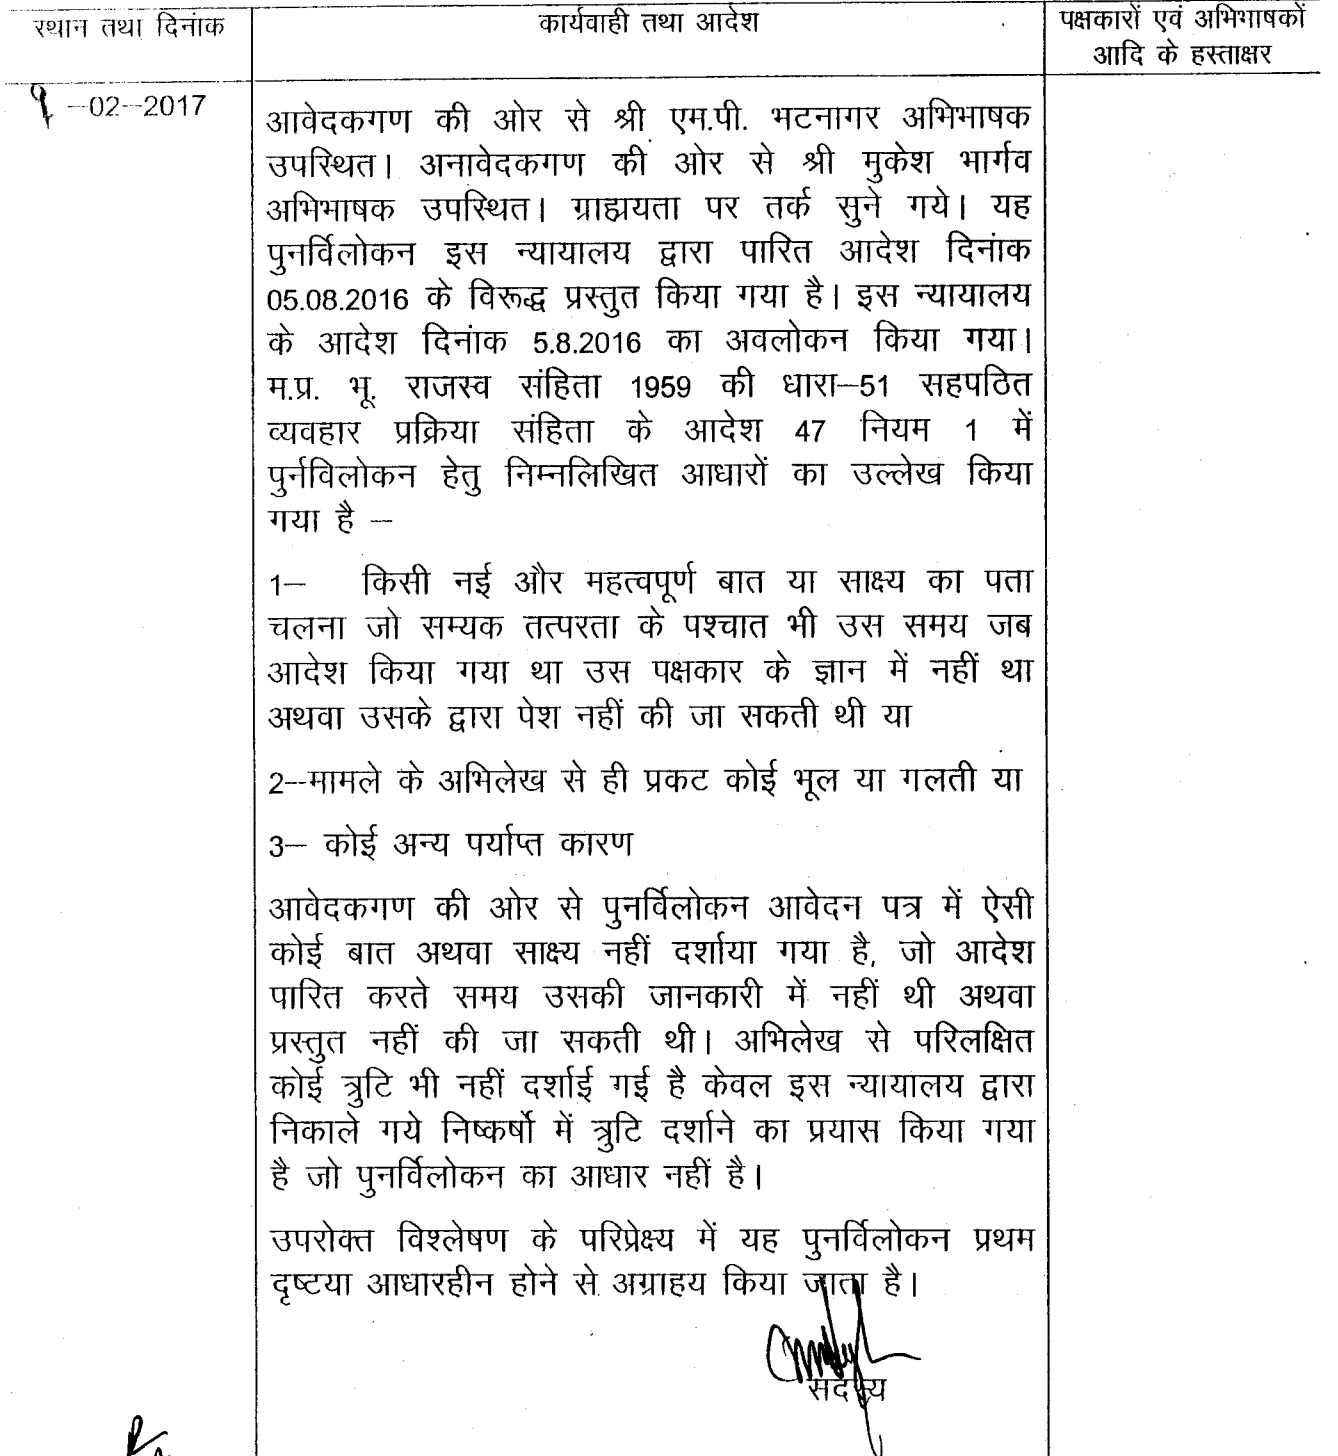 स्थान तथा दिनांक
कार्यवाही तथा आदेश
पक्षकारों एवं अभिभाषकों
आदि के हस्ताक्षर
9 -02-2017
आवेदकगण की ओर से श्री एम.पी. भटनागर अभिभाषक
उपस्थित। अनावेदकगण की ओर से श्री मुकेश भार्गव
अभिभाषक उपस्थित। ग्राह्ययता पर तर्क सुने गये। यह
पुनर्विलोकन इस न्यायालय द्वारा पारित आदेश दिनांक
05.08.2016 के विरूद्ध प्रस्तुत किया गया है। इस न्यायालय
के आदेश दिनांक 5.8.2016 का अवलोकन किया गया।
म.प्र. भू. राजस्व संहिता 1959 की धारा–51 सहपठित
व्यवहार प्रक्रिया संहिता के आदेश 47 नियम 1 में
पुर्नविलोकन हेतु निम्नलिखित आधारों का उल्लेख किया
गया है –
1– किसी नई और महत्वपूर्ण बात या साक्ष्य का पता
चलना जो सम्यक तत्परता के पश्चात भी उस समय जब
आदेश किया गया था उस पक्षकार के ज्ञान में नहीं था
अथवा उसके द्वारा पेश नहीं की जा सकती थी या
2–मामले के अभिलेख से ही प्रकट कोई भूल या गलती या
3– कोई अन्य पर्याप्त कारण
आवेदकगण की ओर से पुनर्विलोकन आवेदन पत्र में ऐसी
कोई बात अथवा साक्ष्य नहीं दर्शाया गया है, जो आदेश
पारित करते समय उसकी जानकारी में नहीं थी अथवा
प्रस्तुत नहीं की जा सकती थी। अभिलेख से परिलक्षित
कोई त्रुटि भी नहीं दर्शाई गई है केवल इस न्यायालय द्वारा
निकाले गये निष्कर्षो में त्रुटि दर्शाने का प्रयास किया गया
है जो पुनर्विलोकन का आधार नहीं है।
उपरोक्त विश्लेषण के परिप्रेक्ष्य में यह पुनर्विलोकन प्रथम
दृष्टया आधारहीन होने से अग्राहय किया जाता है।
सदस्य